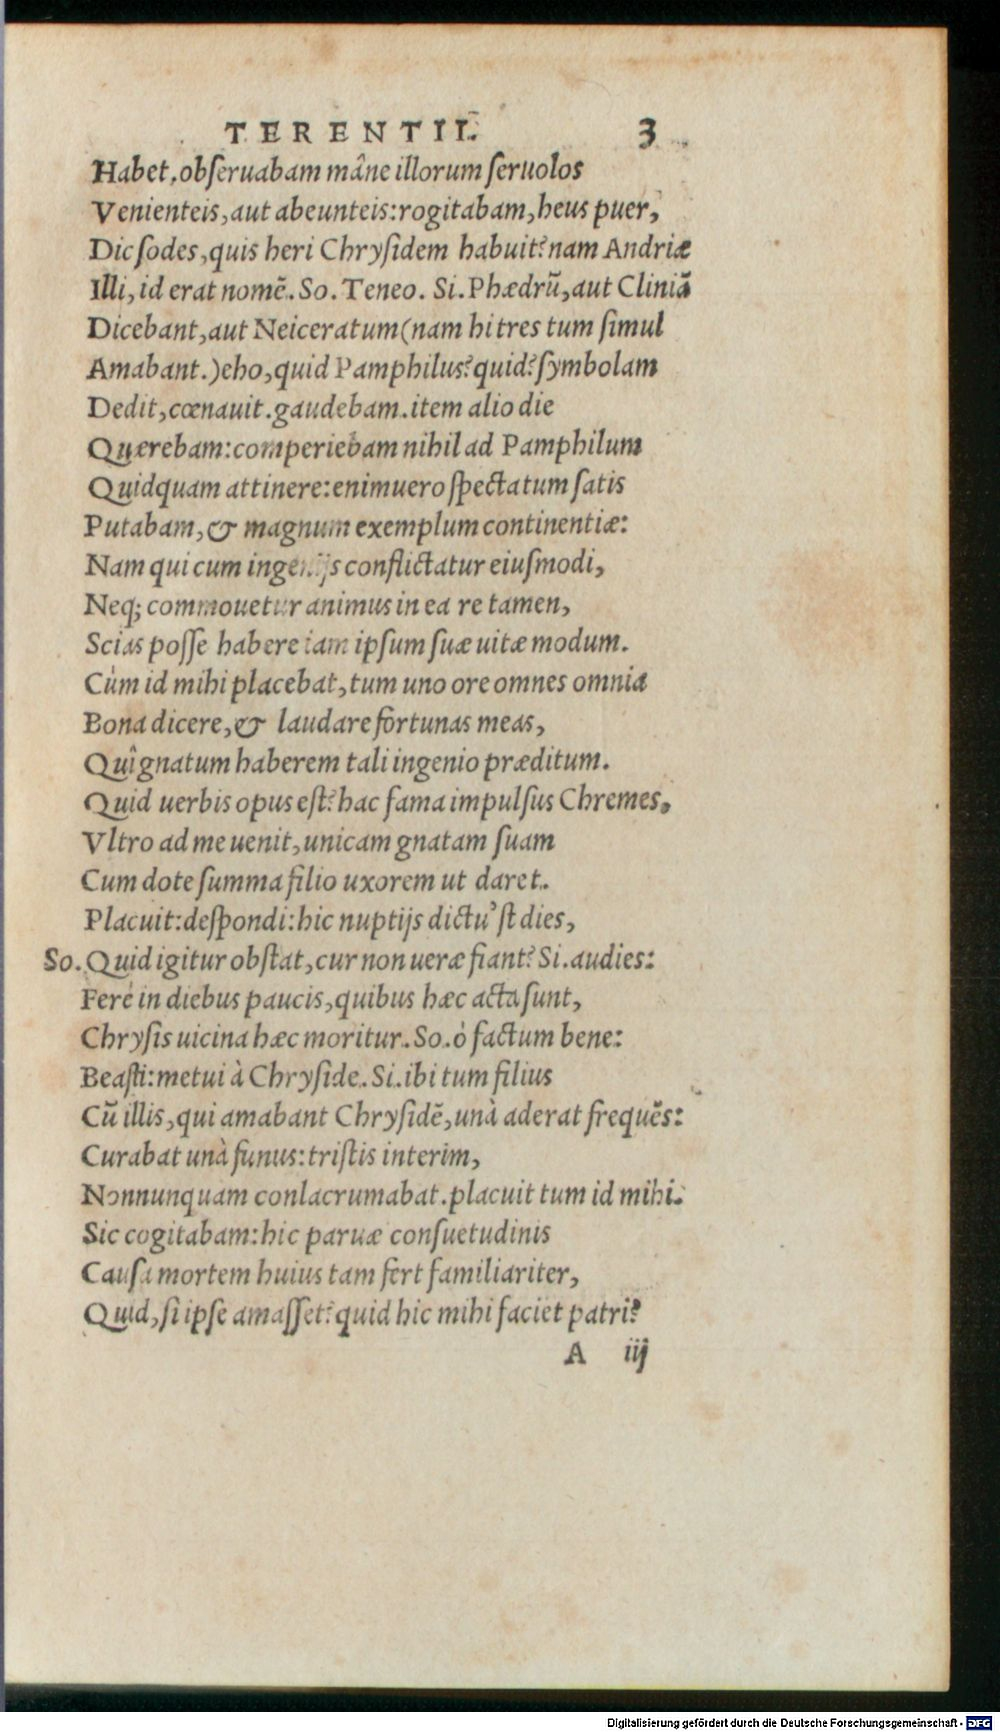 TERENTII. 3
Habet. obſeruabam mâne illorum ſeruolos
Venienteis, aut abeunteis: rogitabam, heus puer,
Dic ſodes, quis heri Chryſidem habuit? nam Andriæ
Illi, id erat nomē. So. Teneo. Si. Phædrū, aut Cliniā
Dicebant, aut Neiceratum (nam hi tres tum ſimul
Amabant.) eho, quid Pamphilus? quid? ſymbolam
Dedit, cœnauit. gaudebam. item alio die
Quærebam: comperiebam nihil ad Pamphilum
Quidquam attinere: enimuero ſpectatum ſatis
Putabam, & magnum exemplum continentiæ:
Nam qui cum ingenijs conflictatur eiuſmodi,
Neq; commouetur animus in ea re tamen,
Scias poſſe habere iam ipſum ſuæ uitæ modum.
Cùm id mihi placebat, tum uno ore omnes omnia
Bona dicere, & laudare fortunas meas,
Quî gnatum haberem tali ingenio præditum.
Quid uerbis opus eſt? hac fama impulſus Chremes,
Vltro ad me uenit, unicam gnatam ſuam
Cum dote ſumma filio uxorem ut daret.
Placuit: deſpondi: hic nuptijs dictu'ſt dies,
So. Quid igitur obſtat, cur non ueræ fiant? Si. audies:
Ferè in diebus paucis, quibus hæc acta ſunt,
Chryſis uicina hæc moritur. So. ò factum bene:
Beaſti: metui à Chryſide. Si. ibi tum filius
Cū illis, qui amabant Chryſidē, unà aderat frequēs:
Curabat unà funus: triſtis interim,
Nonnunquam conlacrumabat. placuit tum id mihi.
Sic cogitabam: hic paruæ conſuetudinis
Cauſa mortem huius tam fert familiariter,
Quid, ſi ipſe amaſſet? quid hic mihi faciet patri?
A iij
Digitalisierung gefördert durch die Deutsche Forschungsgemeinschaft - DFG